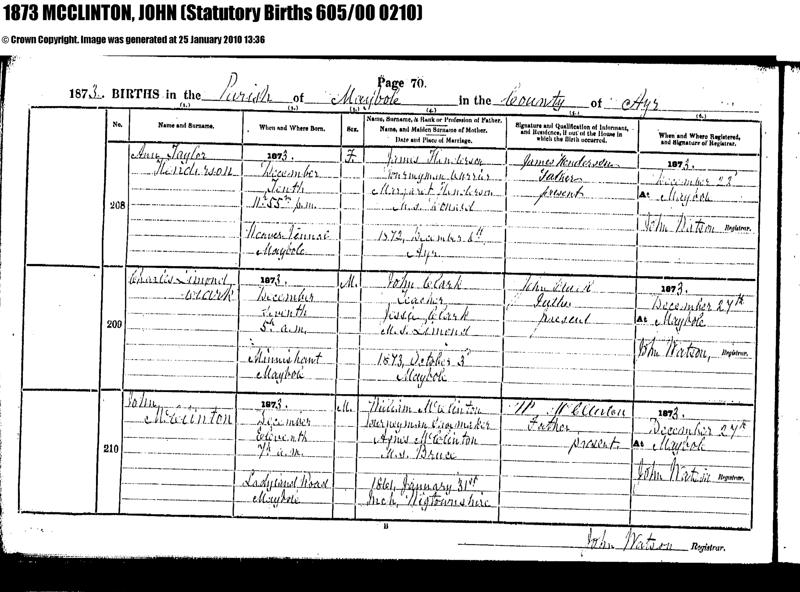 1873 MCCLINTON, JOHN (Statutory Births 605/00 0210)
© Crown Copyright. Image was generated at 25 January 2010 13:36
Page 70.
1873. BIRTHS in the Parish of Maybole in the County of Ayr
(1.) (2.) (3.) (4.) (5.) (6.)
No.
Name and Surname.
When and Where Born.
Sex.
Name, Surname, & Rank or Profession of Father.
Name, and Maiden Surname of Mother.
Date and Place of Marriage.
Signature and Qualification of Informant,
and Residence, if out of the House in
which the Birth occurred.
When and Where Registered,
and Signature of Registrar.
208
Ann Taylor
Henderson
1873.
December
Tenth
11h 55m p.m.
Vennal
Maybole
F.
James Henderson
Journeyman Currier
Margaret Henderson
M.S.
1872, December 6th
Ayr
James Henderson
Father
present
1873.
December 23
At Maybole
John Watson Registrar.
209
Charles Limond
Clark
1873.
December
Seventh
5h a.m.
Minnishant
Maybole
M.
John Clark
Teacher
Jessie Clark
M.S. Limond
1873, October 3
Maybole
John Clark
Father
present
1873.
December 27th
At Maybole
John Watson, Registrar.
210
John
McClinton
1873.
December
Eleventh
7h a.m.
Ladyland Road
Maybole
M.
William McClinton
Journeyman Shoemaker
Agnes McClinton
M.S. Bruce
1861, January 31st
Inch, Wigtownshire
Wm McClinton
Father
present
1873.
December 27th
At Maybole
John Watson Registrar.
B
John Watson Registrar.